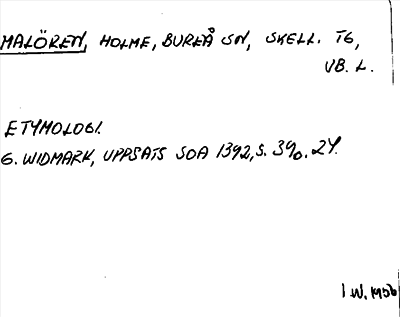 MALÖREN, HOLME, BUREÅ SN, SKELL. TG,
VB. L.
ETYMOLOGI.
G. WIDMARK, UPPSATS SOA 1392, S. 39 o. 24.
I W. 1956